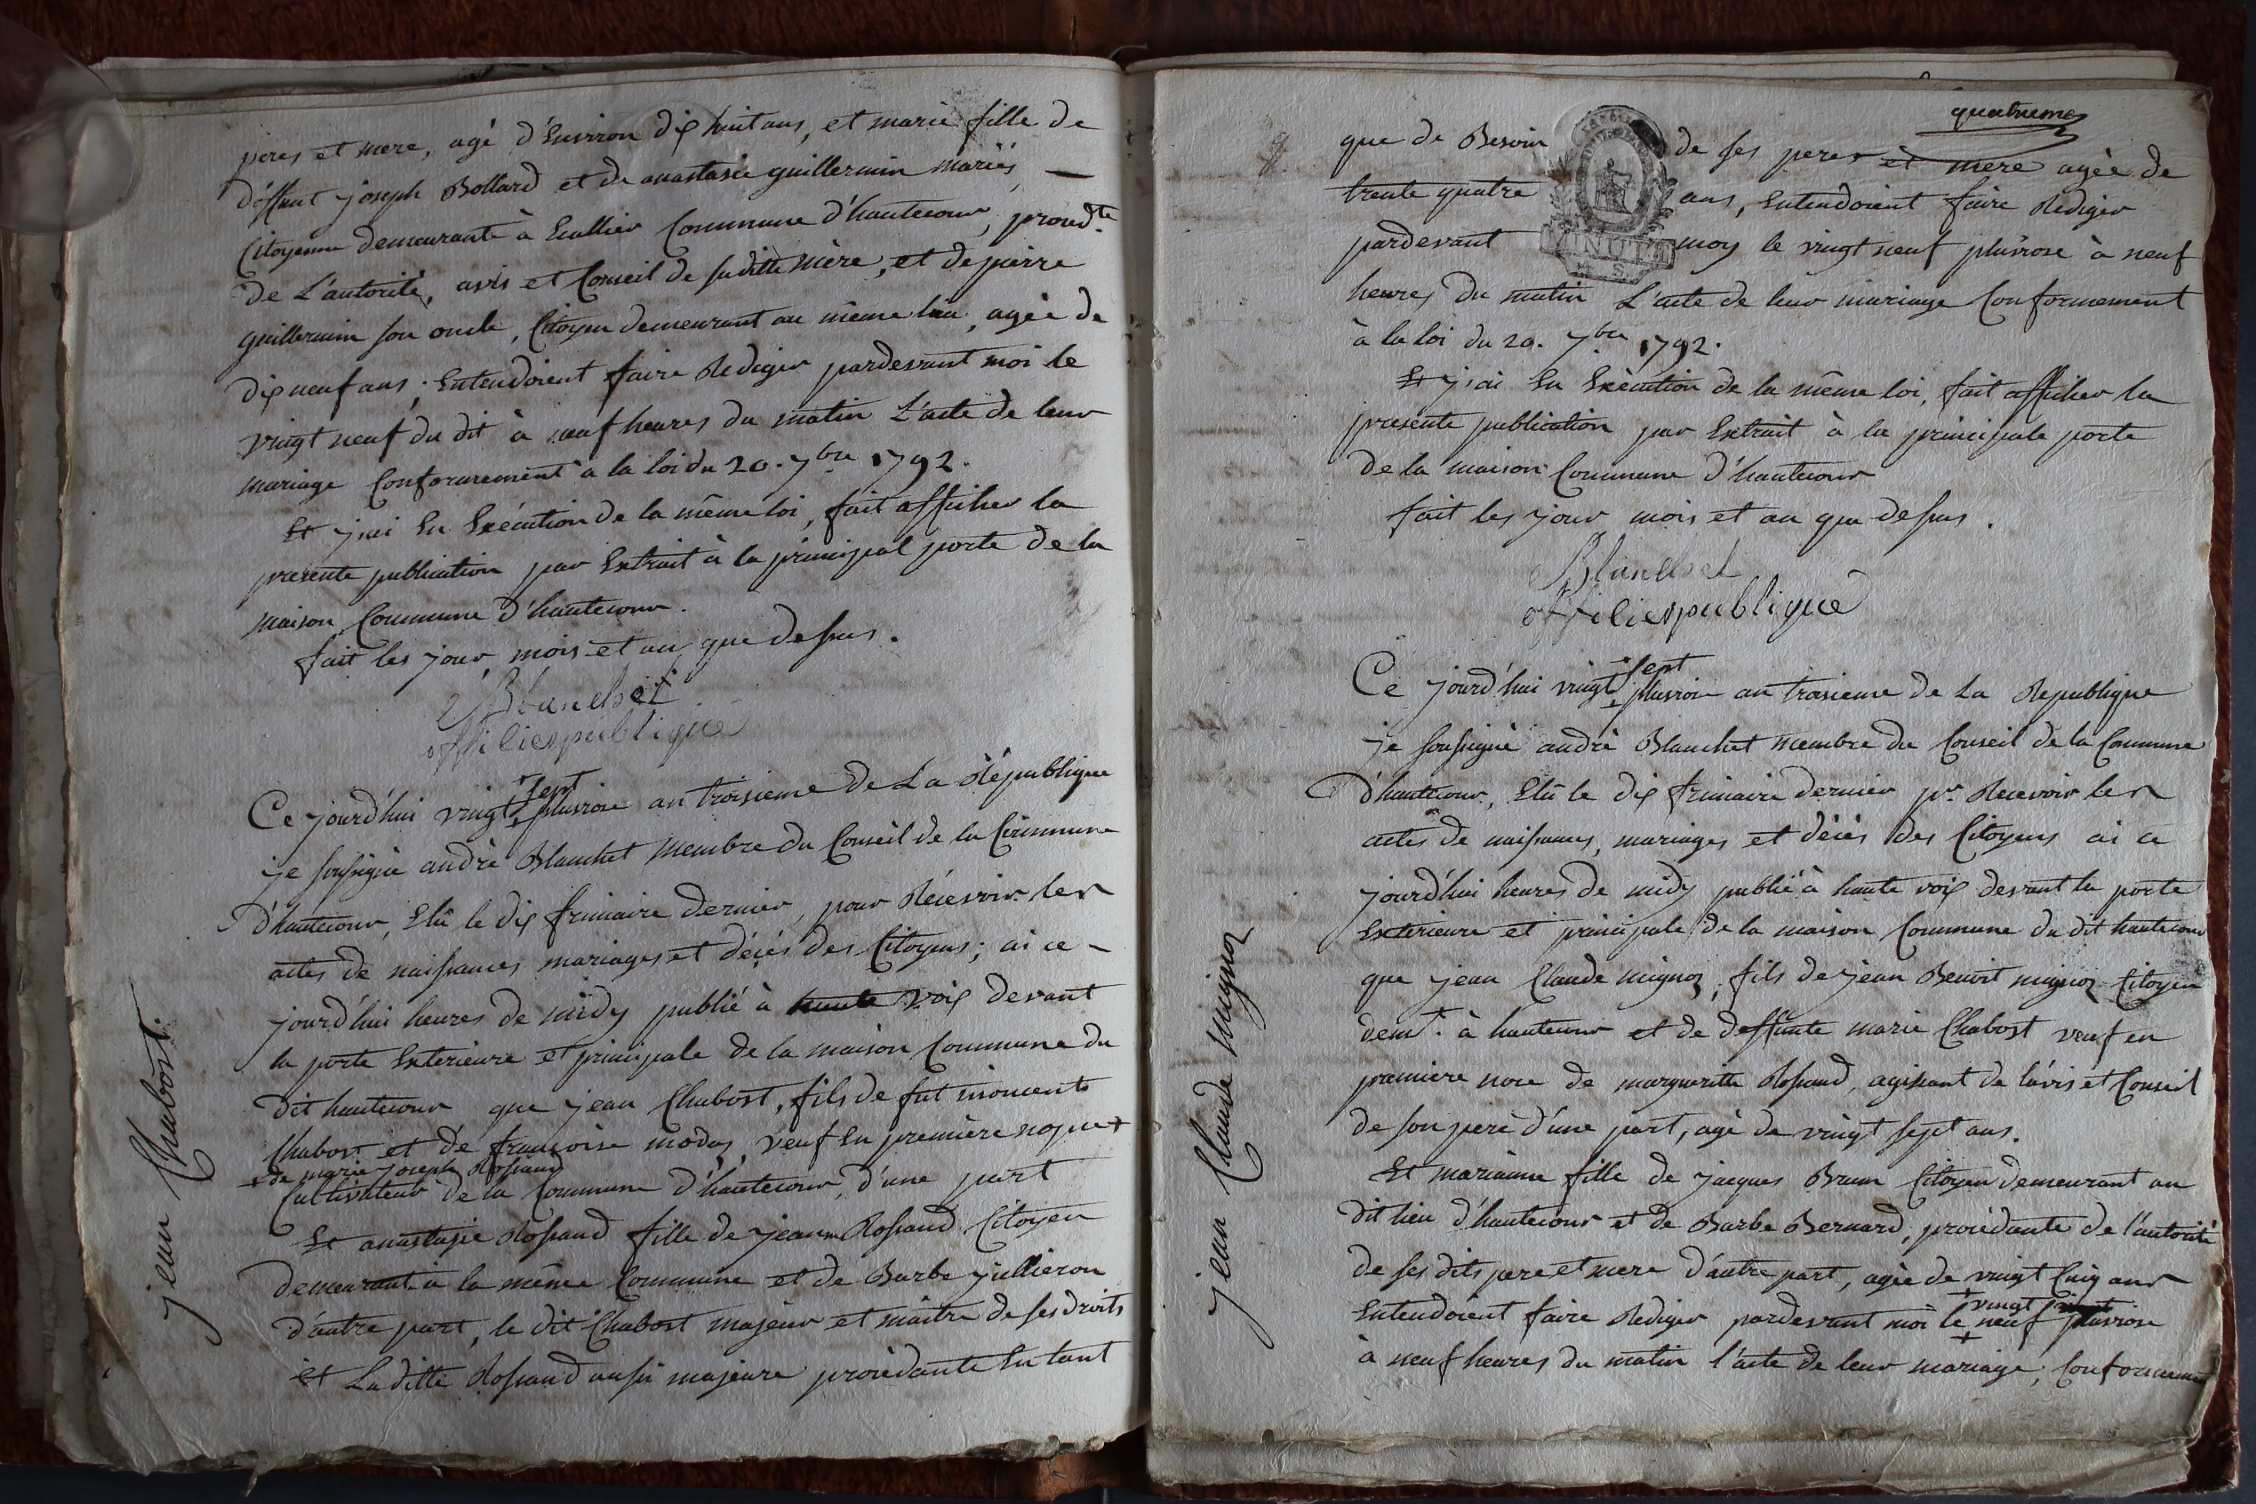 peres et mere, agé d'Environ dix huit ans, et marie fille de
déffunt joseph Bollard et de anastasie guillermin mariés,
Citoyenne demeurante à Commune d'hautecour, proced.te
de L'autorité, avis et Conseil de sa ditte mère, et de pierre
guillermin son oncle, Citoyen demeurant au même lieu, agée de
dix neuf ans; Entendoient faire Rediger pardevant moi le
vingt neuf du dit à neuf heures du matin L'acte de leur
mariage Conformement à la loi du 20. 7bre 1792.
Et j'ai En Exécution de la même loi, fait afficher la
presente publication par Extrait à la principal porte de la
maison Commune d'hautecour.
fait les jour, mois et an que dessus.
Blanchet
officier publique
sept
Ce jourd'hui vingt pluviose an troisieme de La République
je soussigné andré Blanchet membre du Conseil de la Commune
d'hautecour, Elû le dix frimaire dernier, pour Récevoir les
actes de naissances mariages et décés des Citoyens; ai ce
jourd'hui heures de midy publié à haute voix devant
la porte Exterieure et principale de la maison Commune du
dit hautecour que jean Chabost, fils de fut
Chabost et de françoise veuf En première nopce +
+ de marie joseph Rossand
Cultivateur de la Commune d'hautecour, d'une part
Et anastasie Rossand fille de jean Rossand Citoyen
demeurant à la même Commune et de Barbe jullieron
d'autre part, le dit Chabost majeur et maitre de ses droits
et La ditte Rossand aussi majeure procédante En tant
jean Chabost.
quatrieme
que de Besoin de ses peres et mere agée de
trente quatre ans, Entendoient faire Rediger
pardevant moy le vingt neuf pluviose à neuf
heures du matin L'acte de leur mariage Conformement
à la loi du 20. 7bre 1792.
Et j'ai En Exécution de la même loi, fait afficher la
presente publication par Extrait à la principale porte
de la maison Commune d'hautecour
fait les jour mois et an que dessus.
Blanchet
officier publique
sept
Ce jourd'hui vingt pluviose an troisieme de La Republique
je soussigné andré Blanchet membre du Conseil de la Commune
d'hautecour, Elû le dix frimaire dernier pr. Recevoir les
actes de naissances, mariages et décés des Citoyens ai ce
jourd'hui heures de midy publié à haute voix devant la porte
Exterieure et principale de la maison Commune du dit hautecour
que jean Claude mignoz, fils de jean Benoit mignoz Citoyen
demt. à hautecour et de deffunte marie Chabost veuf en
premiere noce de margueritte Rossand, agissant de l'avis et Conseil
de son pere d'une part, agé de vingt sept ans.
Et marianne fille de jacques Brun Citoyen demeurant au
dit lieu d'hautecour et de Barbe Bernard, procédante de l'autorité
de ses dits pere et mere d'autre part, agée de vingt Cinq ans
vingt
Entendoient faire Rediger pardevant moi le neuf pluviose
à neuf heures du matin l'acte de leur mariage, Conformement
jean Claude mignoz